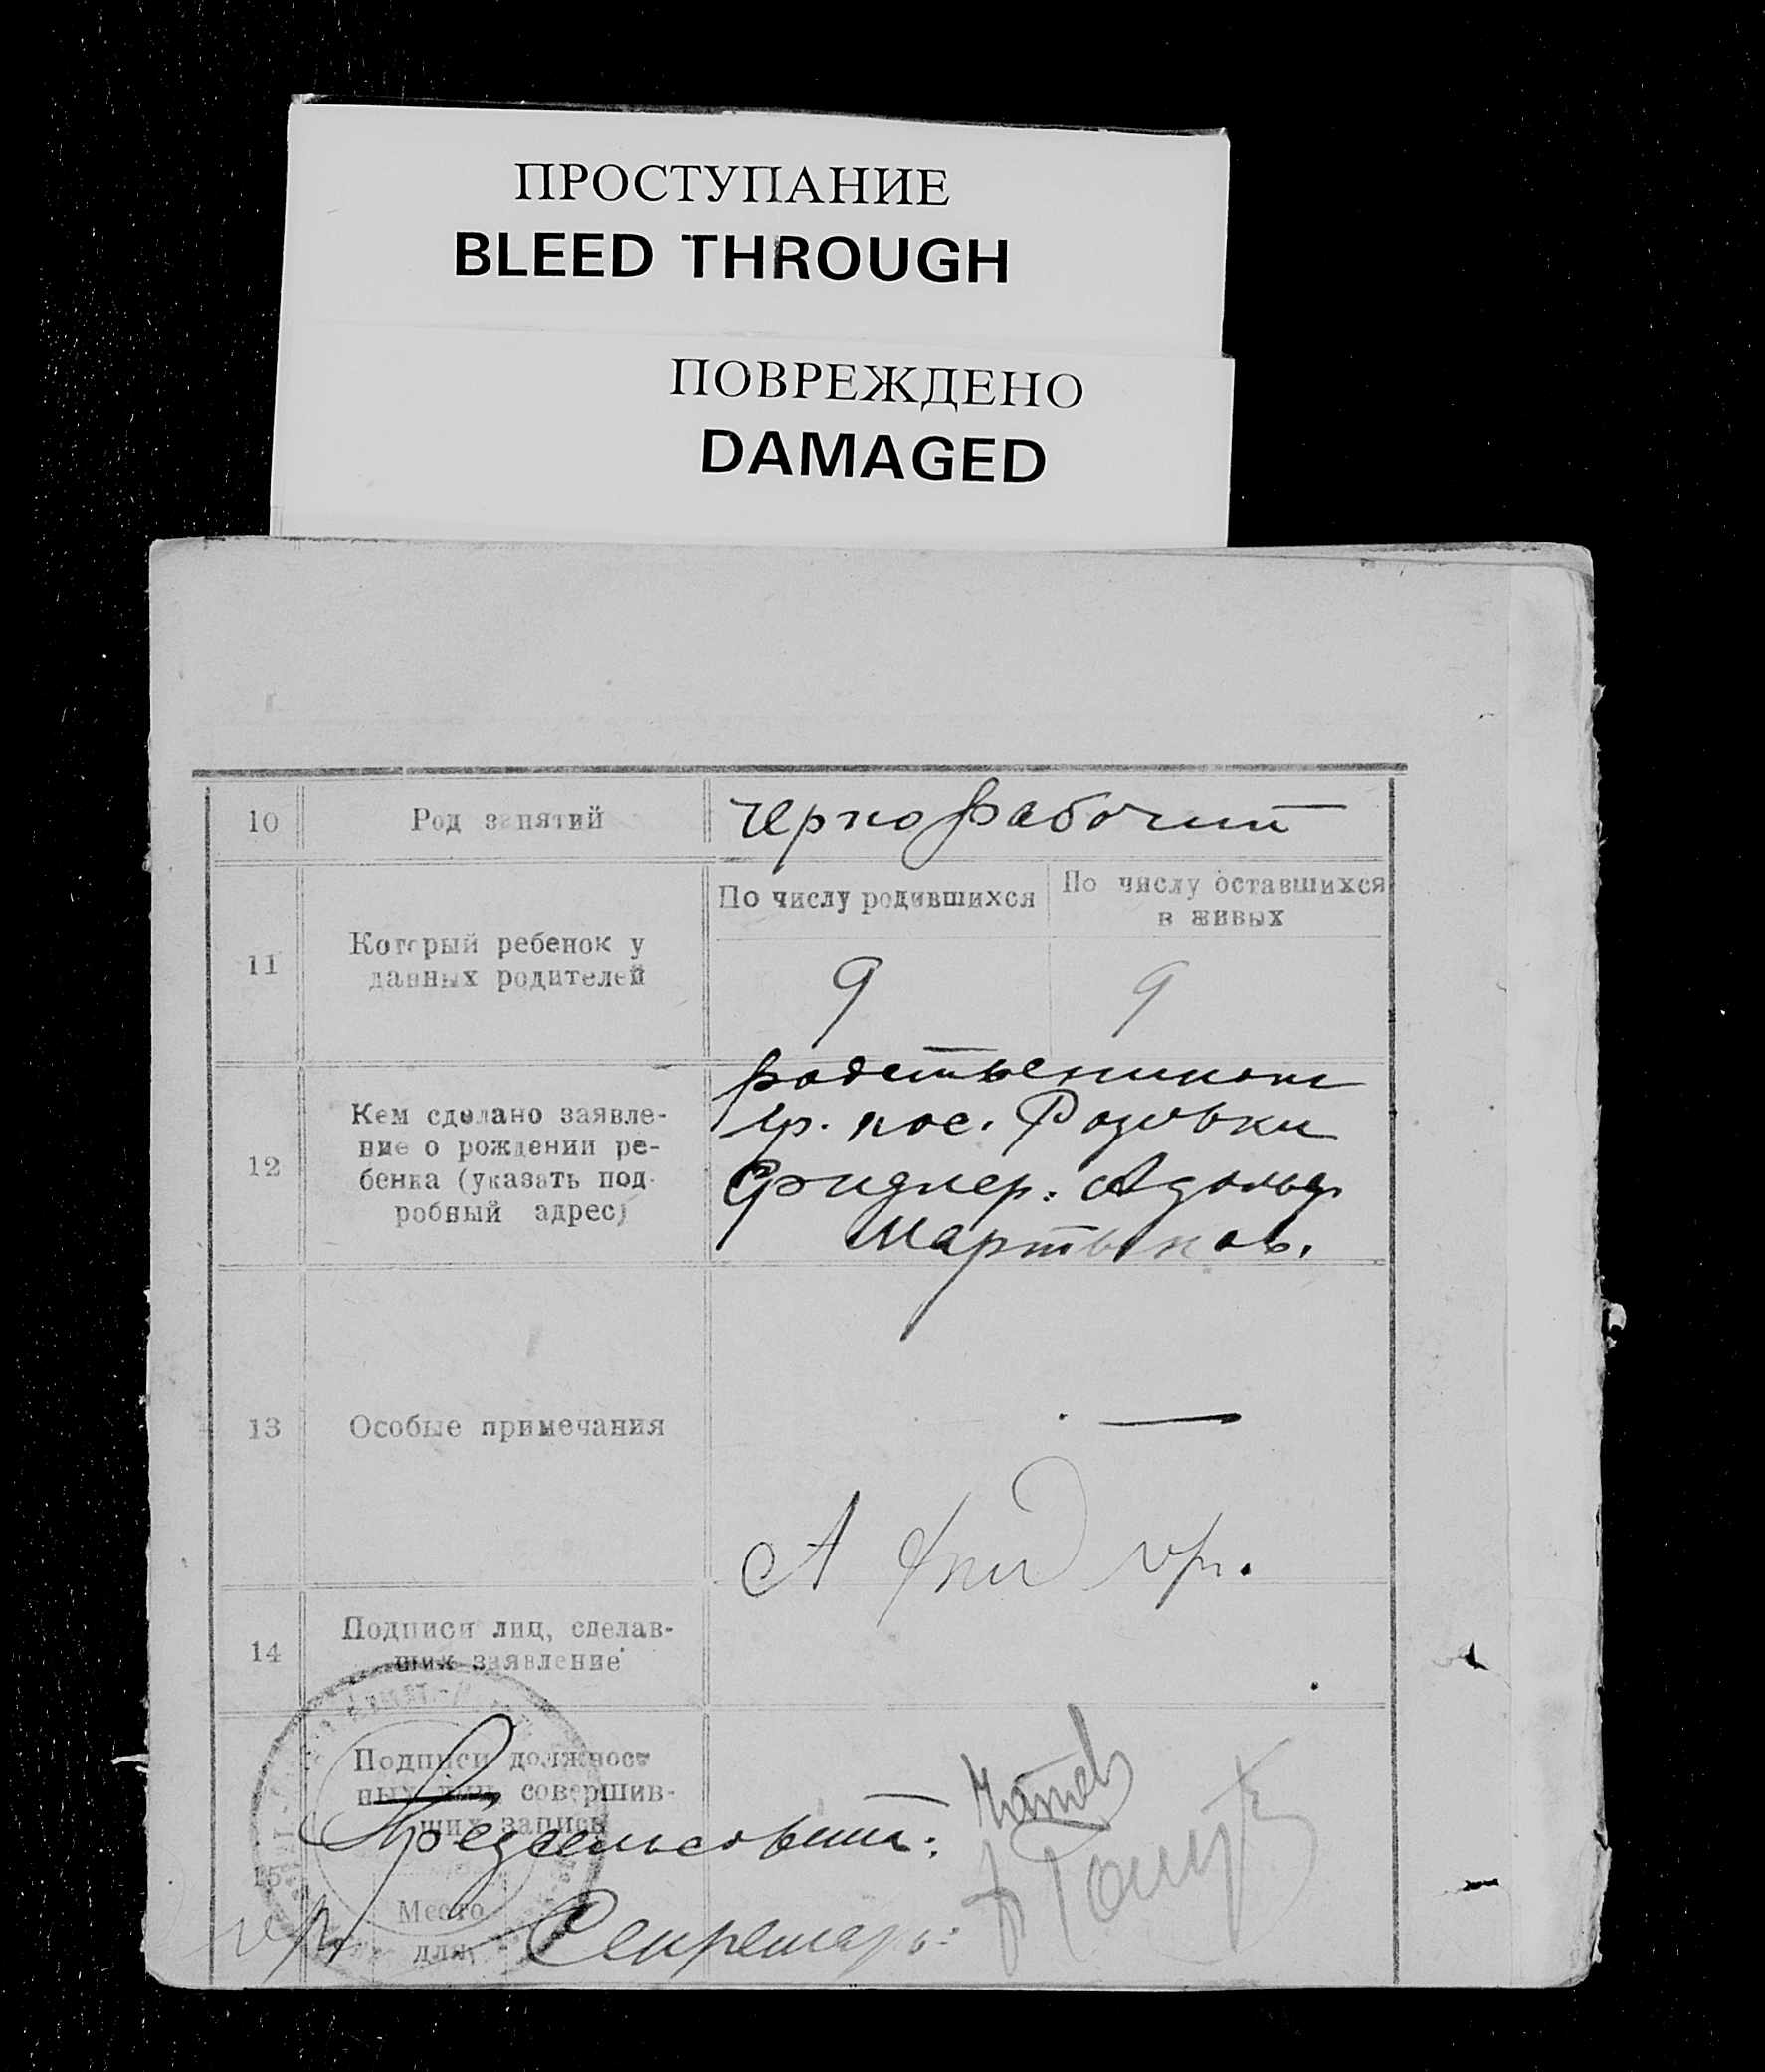 ПРОСТУПАНИЕ
BLEED THROUGH
ПОВРЕЖДЕНО
DAMAGED
10 Род занятий чернорабочий
11 Который ребенок у
данных родителей
По числу родившихся
По числу оставшихся
в живых
9 9
12 Кем сделано заявле-
ние о рождении ре-
бенка (указать под-
робный адрес)
родственником
гр. кол. Розовки
Фидлер. Адольф
Мартынов.
13 Особые примечания —
14 Подписи лиц, сделав-
ших заявление
А
15 Подписи должност
ных лиц, совершив-
ших запись
Предсельсовета:
Место
для
Секретарь: